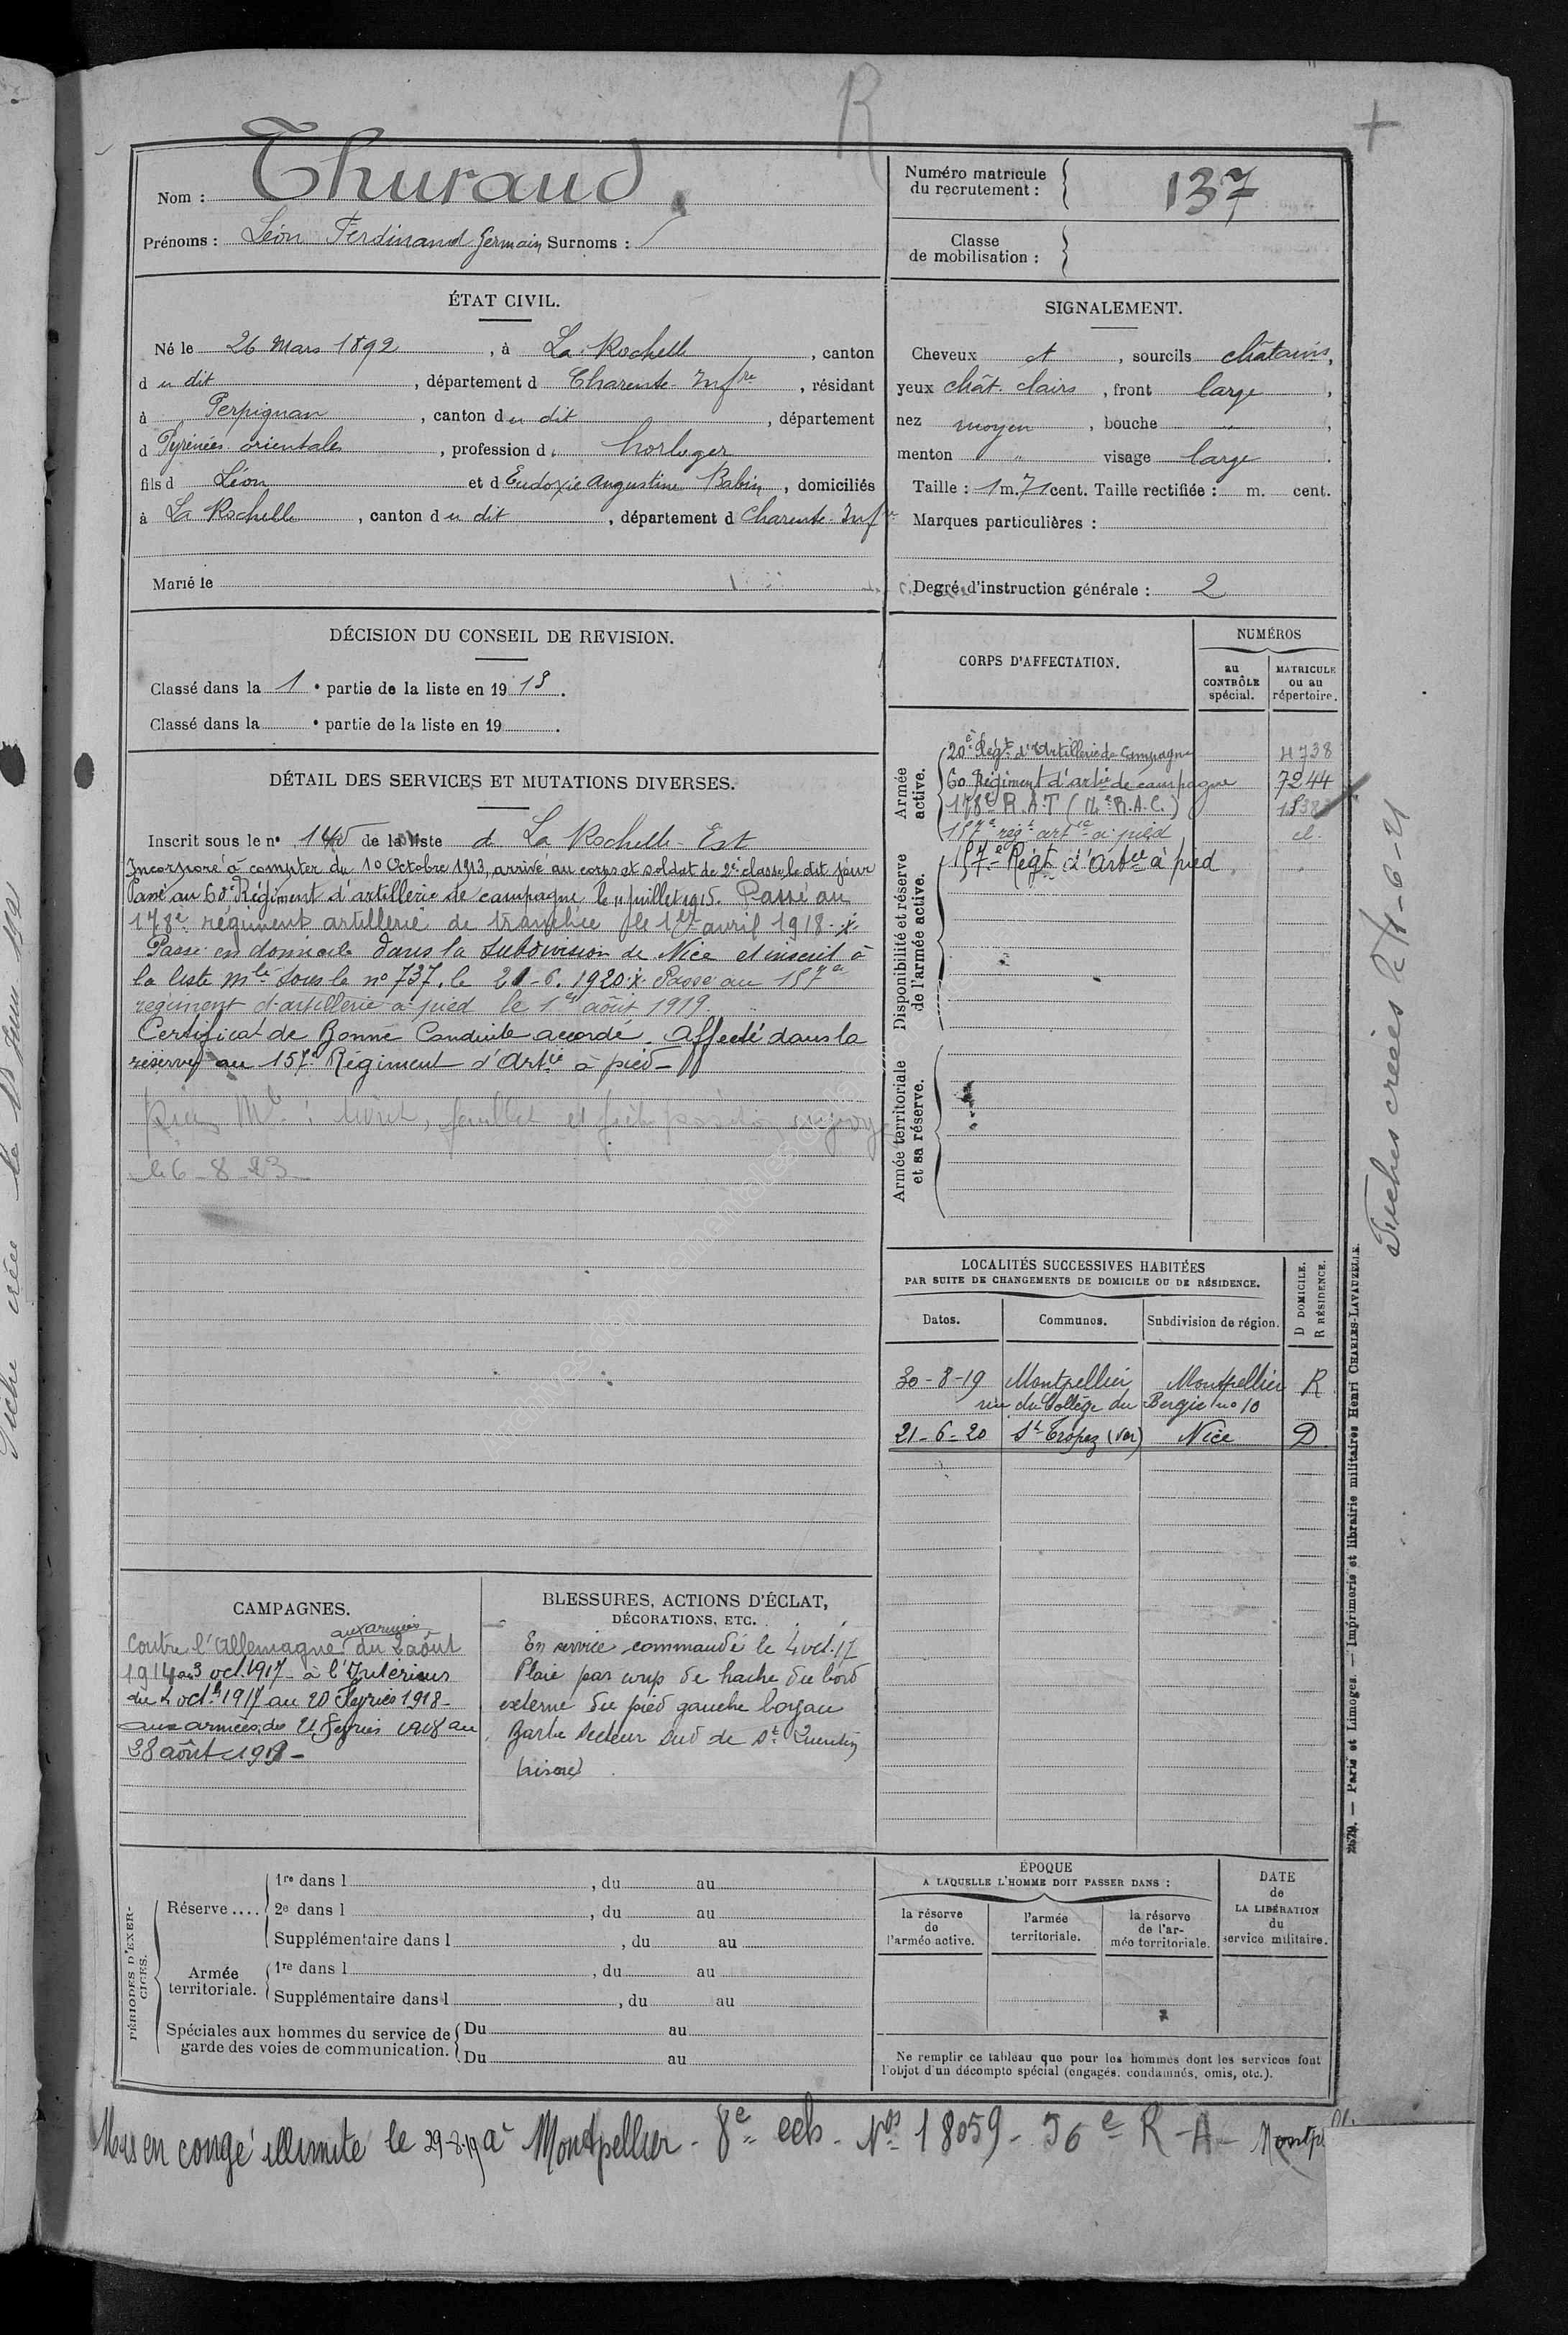 R
+
Nom : Thuraud
Prénoms : Léon Ferdinand Germain Surnoms : /
Numéro matricule du recrutement : 137
Classe de mobilisation :
ÉTAT CIVIL.
Né le 26 Mars 1892, à La Rochelle, canton
du dit, département d Charente-Infre, résidant
à Perpignan, canton du dit, département
d Pyrénées orientales, profession d horloger
fils d Léon et d Eudoxie Augustine Babin, domiciliés
à La Rochelle, canton du dit, département d Charente-Infre
Marié le
SIGNALEMENT.
Cheveux et, sourcils châtains,
yeux chât. clairs, front large,
nez moyen, bouche ",
menton " visage large.
Taille : 1 m. 71 cent. Taille rectifiée : m. cent.
Marques particulières :
Degré d'instruction générale : 2
DÉCISION DU CONSEIL DE REVISION.
Classé dans la 1e partie de la liste en 1913.
Classé dans la e partie de la liste en 19 .
DÉTAIL DES SERVICES ET MUTATIONS DIVERSES.
Inscrit sous le n° de la liste d La Rochelle-Est
Incorporé à compter du 10 Octobre 1913, arrivé au corps et soldat de 2e classe le dit jour
Passé au 60e Régiment d'artillerie de campagne le 11 juillet 1915. Passé au
178e régiment artillerie de tranchée le 1er avril 1918.
Passé en domicile dans la subdivision de Nice et inscrit à
la liste mle sous le no 737. le 21-6-1920. Passé au 157e
régiment d'artillerie à pied le 1er août 1919.
Certificat de Bonne Conduite accordé. Affecté dans la
réserve au 157e Régiment d'Artie à pied
le 6-8-23
CORPS D'AFFECTATION.
NUMÉROS
au CONTRÔLE spécial.
MATRICULE ou au répertoire.
Armée active.
20e Régt d'Artillerie de Campagne 4738
60 Régiment d'artie de campagne 7244
178e R.A.T (R.A.C.)
157e régt artie à pied cl.
Disponibilité et réserve de l'armée active.
157e Régt d'Artie à pied
Armée territoriale et sa réserve.
LOCALITÉS SUCCESSIVES HABITÉES
PAR SUITE DE CHANGEMENTS DE DOMICILE OU DE RÉSIDENCE.
D DOMICILE. R RÉSIDENCE.
Dates. Communes. Subdivision de région.
30-8-19 Montpellier Montpellier R
rue du Collège du Bergie no 10
21-6-20 St Tropez (Var) Nice D
CAMPAGNES.
aux armées
Contre l'Allemagne du 2 août
1914 au 3 oct. 1917 - à l'Intérieur
du 4 oct. 1917 au 20 Février 1918 -
aux armées du 21 février 1918 au
28 août 1919 -
BLESSURES, ACTIONS D'ÉCLAT, DÉCORATIONS, ETC.
En service commandé le 4 oct. 17
Plaie par coup de hache du bord
externe du pied gauche boyau
Barbe Secteur Sud de St Quentin
PÉRIODES D'EXERCICES.
Réserve ....
1re dans l , du au
2e dans l , du au
Supplémentaire dans l , du au
Armée territoriale.
1re dans l , du au
Supplémentaire dans l , du au
Spéciales aux hommes du service de garde des voies de communication.
Du au
Du au
ÉPOQUE
A LAQUELLE L'HOMME DOIT PASSER DANS :
la réserve de l'armée active.
l'armée territoriale.
la réserve de l'armée territoriale.
DATE de LA LIBÉRATION du service militaire.
Ne remplir ce tableau que pour les hommes dont les services font
l'objet d'un décompte spécial (engagés, condamnés, omis, etc.).
Mis en congé illimité le 29-8-19 à Montpellier - 8e ech - No 18059 - 56e R-A- Montp
Fiches créées le 24-6-21
2679. — Paris et Limoges. — Imprimerie et librairie militaires Henri CHARLES-LAVAUZELLE.